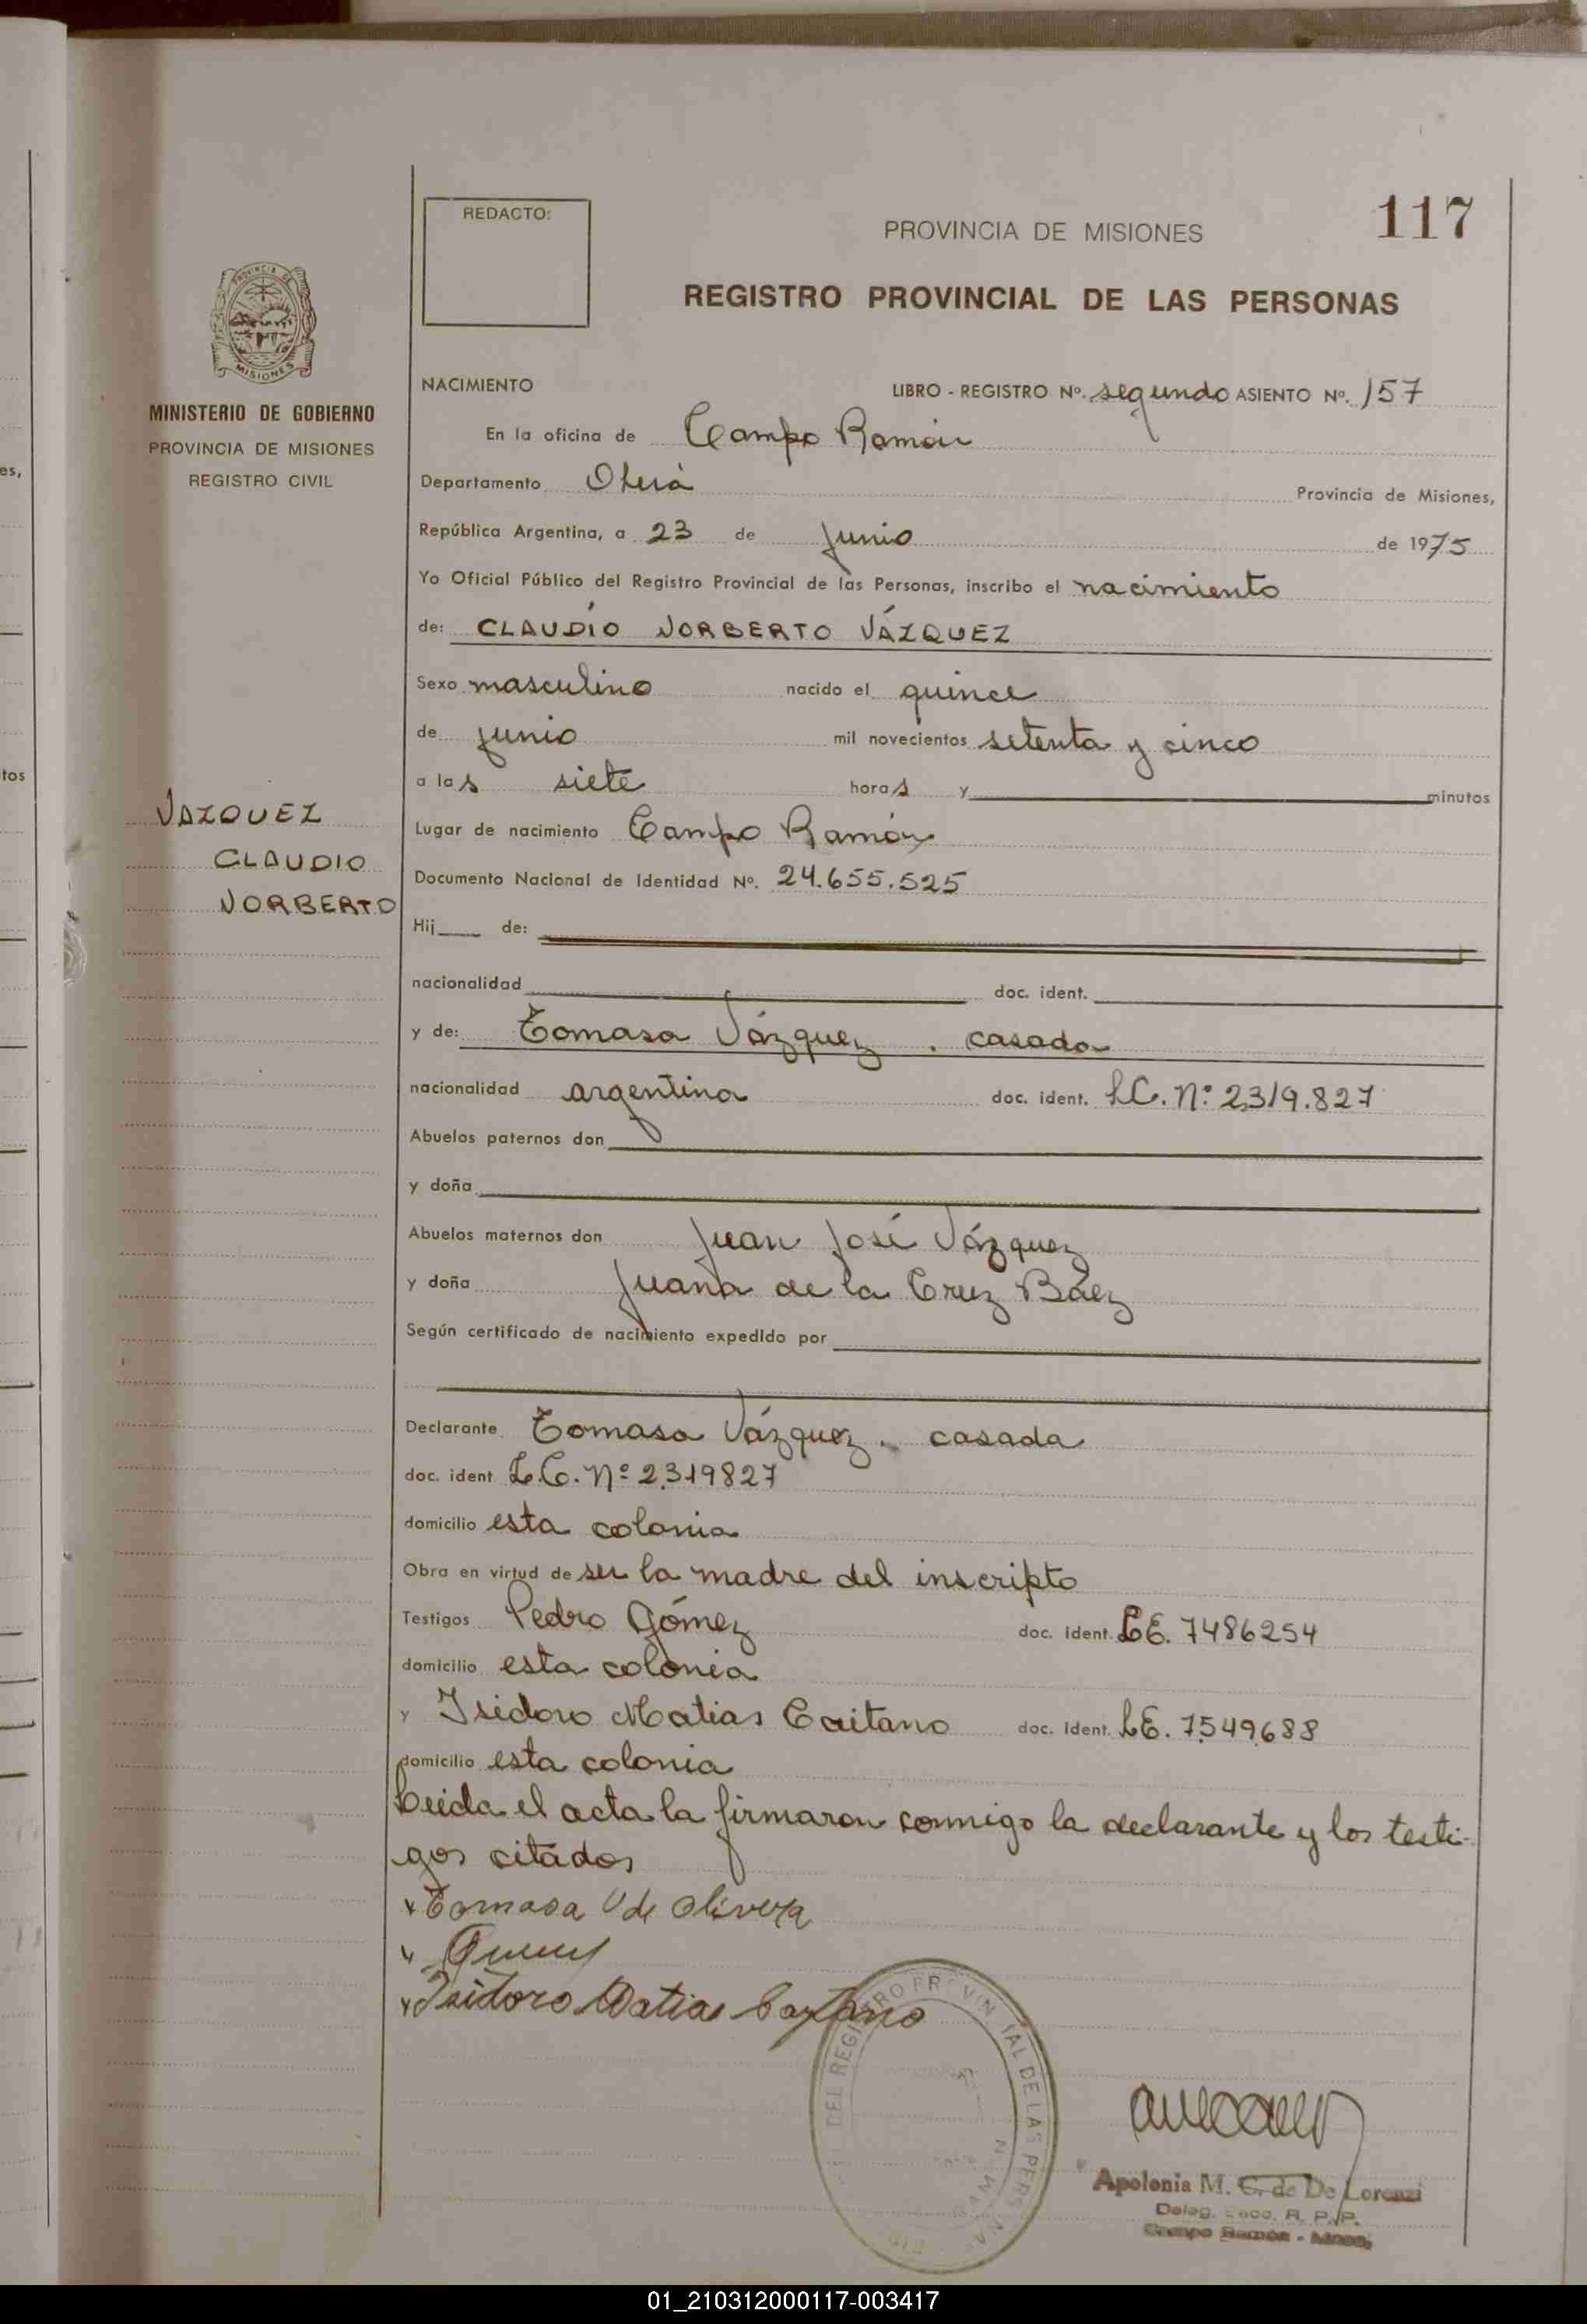 117
REDACTO:
PROVINCIA DE MISIONES
REGISTRO PROVINCIAL DE LAS PERSONAS
PROVINCIA DE
MISIONES
MINISTERIO DE GOBIERNO
PROVINCIA DE MISIONES
REGISTRO CIVIL
VAZQUEZ
CLAUDIO
NORBERTO
es,
tos
NACIMIENTO LIBRO - REGISTRO Nº. segundo ASIENTO Nº. 157
En la oficina de Campo Ramón
Departamento Oberá Provincia de Misiones,
República Argentina, a 23 de junio de 1975
Yo Oficial Público del Registro Provincial de las Personas, inscribo el nacimiento
de: CLAUDIO NORBERTO VÁZQUEZ
Sexo masculino nacido el quince
de junio mil novecientos setenta y cinco
a las siete horas y minutos
Lugar de nacimiento Campo Ramón
Documento Nacional de Identidad Nº. 24.655.525
Hij de:
nacionalidad doc. ident.
y de: Tomasa Vázquez . casada
nacionalidad argentina doc. ident. L.C. Nº 2.319.827
Abuelos paternos don
y doña
Abuelos maternos don Juan José Vázquez
y doña Juana de la Cruz Báez
Según certificado de nacimiento expedido por
Declarante Tomasa Vázquez . casada
doc. ident L.C. Nº 2.319827
domicilio esta colonia
Obra en virtud de ser la madre del inscripto
Testigos Pedro Gómez doc. ident. L.E. 7486254
domicilio esta colonia
y Isidoro Matias Caitano doc. ident. L.E. 7.549.688
domicilio esta colonia
Leida el acta la firmaron conmigo la declarante y los testi-
gos citados
Tomasa V de Olivera
Isidoro Matias Caytano
DEL REGISTRO PROVINCIAL DE LAS PERSONAS
Apolonia M. C. de De Lorenzi
Deleg. R. P. P.
Campo Ramón - Mnes.
01_210312000117-003417